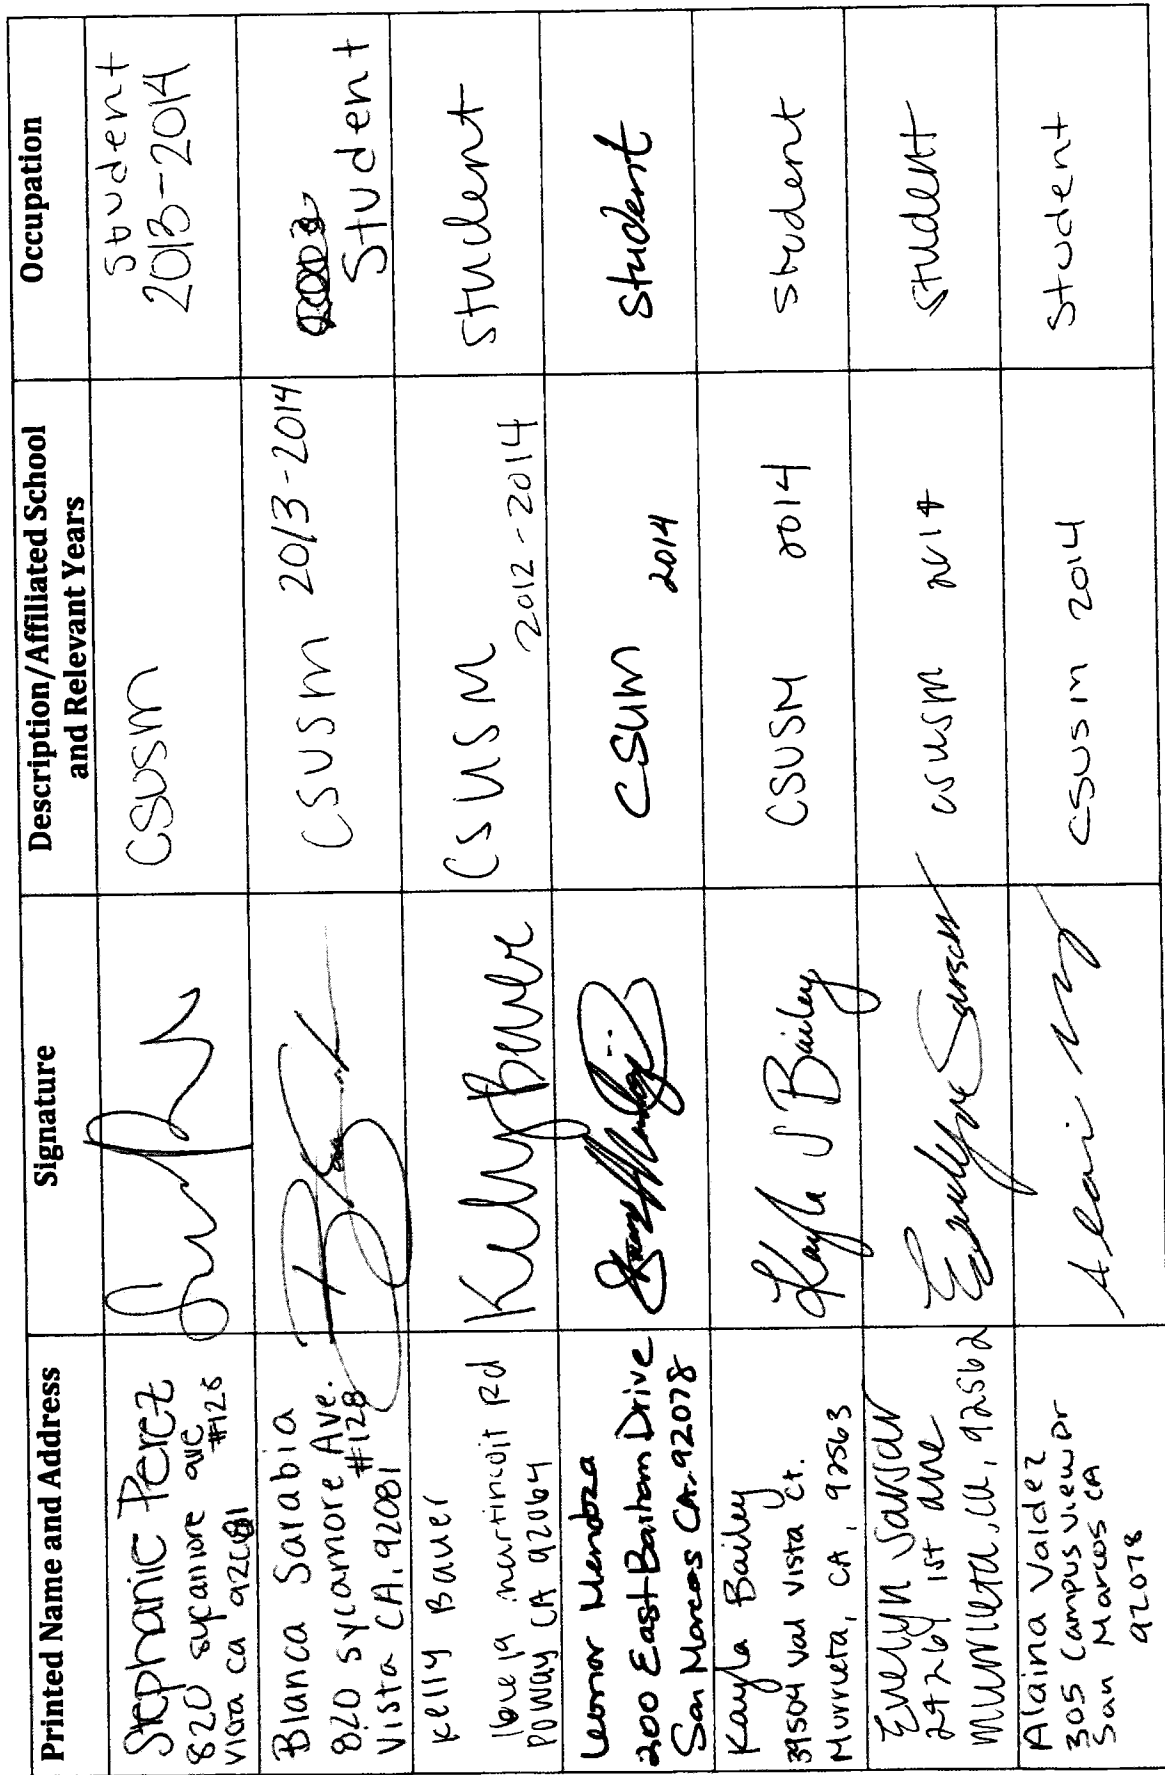 Printed Name and Address
Signature
Description/Affiliated School
and Relevant Years
Occupation
Stephanie Perez
820 sycamore ave
#128
Vista ca 92081
CSUSM
Student
2013-2014
Blanca Sarabia
820 Sycamore Ave.
#128
Vista CA. 92081
CSUSM 2013-2014
Student
Kelly Bauer
martincoit Rd
Poway CA 92064
Kelly Bauer
CSUSM
2012-2014
Student
Leonor Mendoza
200 East Barham Drive
San Marcos CA. 92078
CSUM 2014
Student
Kayla Bailey
39504 Val Vista Ct.
Murrieta, CA, 92563
Kayla J Bailey
CSUSM 2014
Student
Evelyn
24264 1st ave
murrieta, ca, 92562
CSUSM 2014
Student
Alaina Valdez
305 Campus View Dr
San Marcos CA
92078
CSUSM 2014
Student